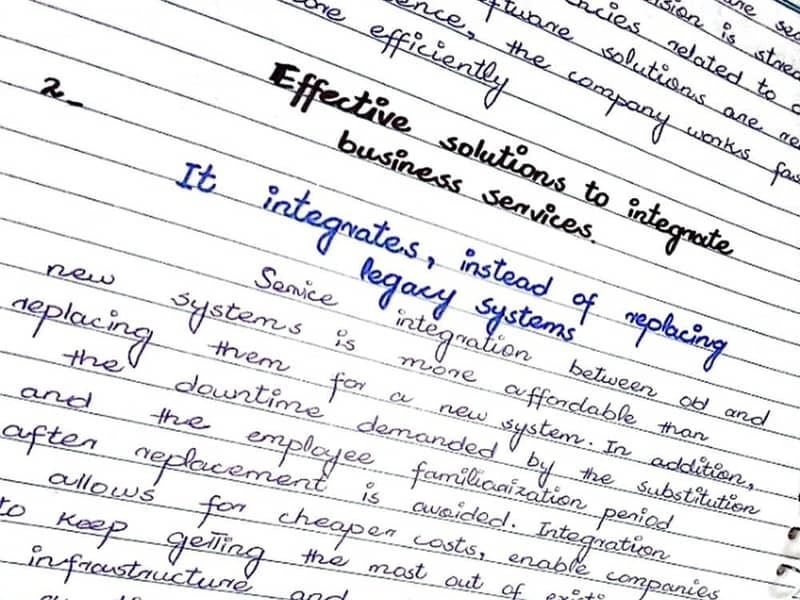 are sec
ncies vision is stored
ence, software related to
are the solutions are re
efficiently company works fas
2-
Effective solutions to integrate
business services.
It integrates, instead of replacing
legacy systems
Service integration between old and
new systems is more affordable than
replacing them for a new system. In addition,
the downtime demanded by the substitution
and the employee familiarization period
after replacement is avoided. Integration
allows for cheaper costs, enable companies
to keep getting the most out of
infrastructure and